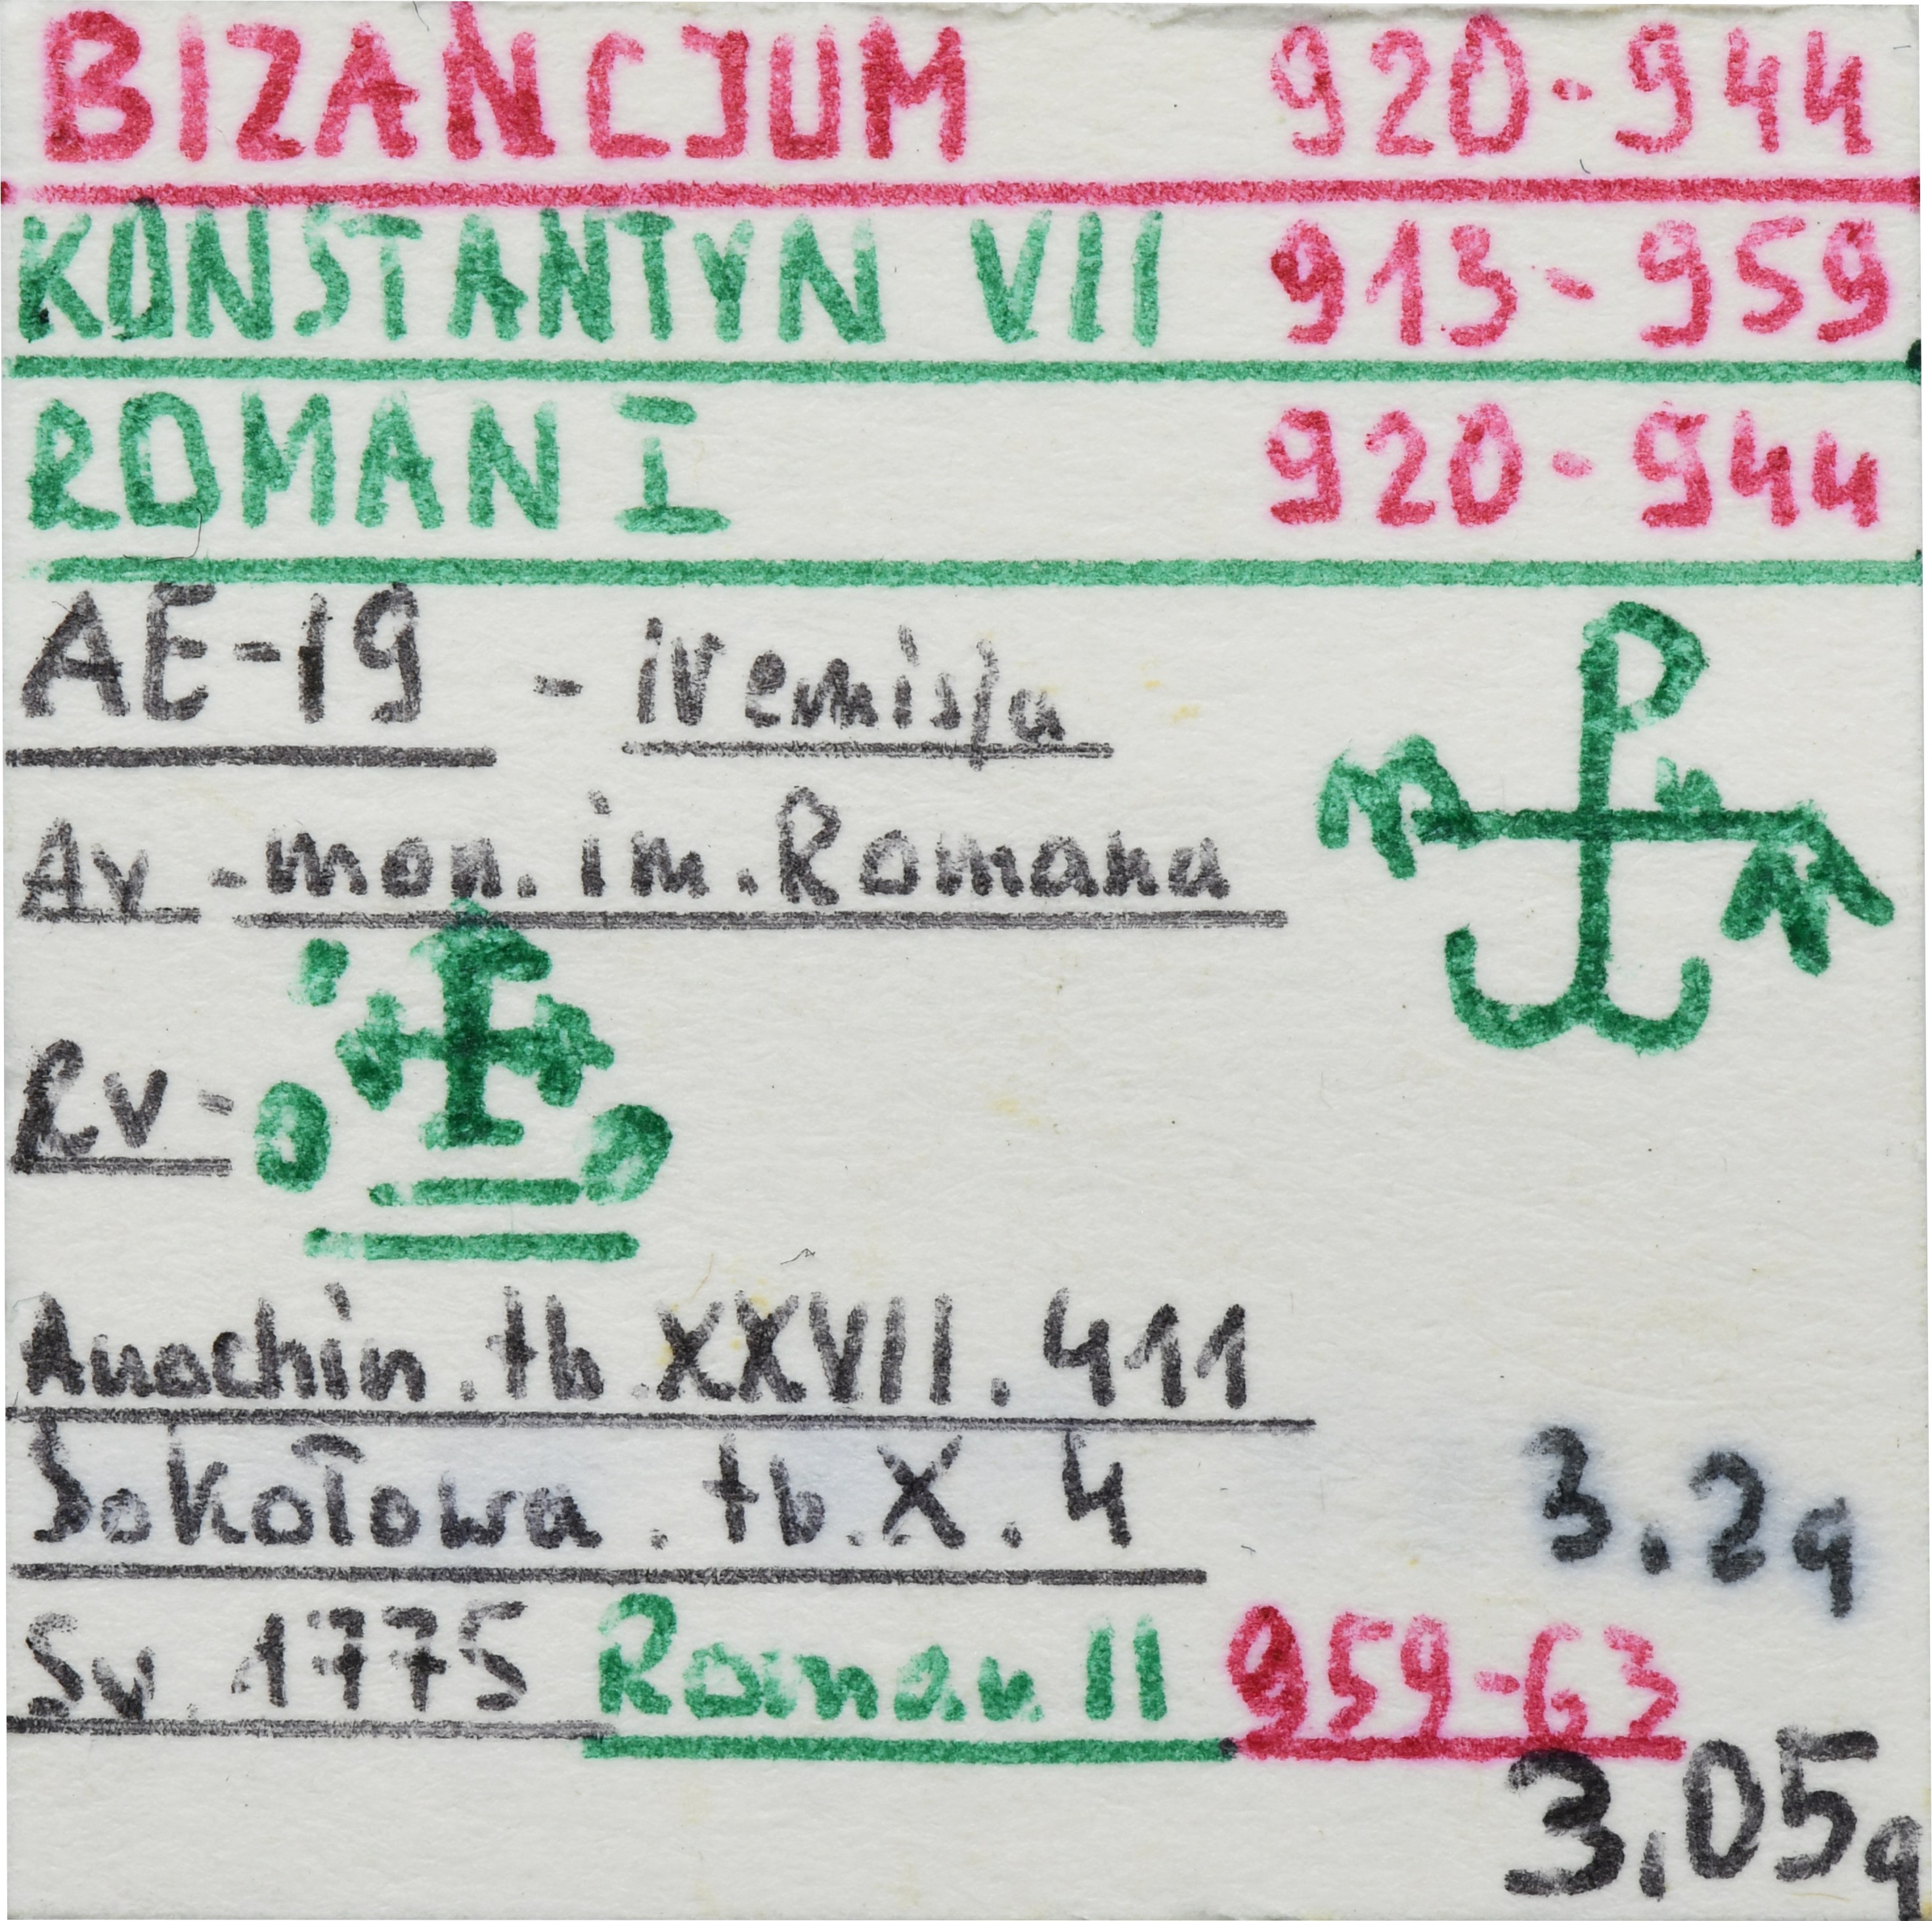 BIZANCJUM 920-944
KONSTANTYN VII 913-959
ROMAN I 920-944
AE-19 - IV emisja
Av - mon. im. Romana
Rv-
Anochin. tb. XXVII. 411
Sokołowa. tb. X. 4 3.2g
Sv. 1775 Roman II 959-63
3,05g